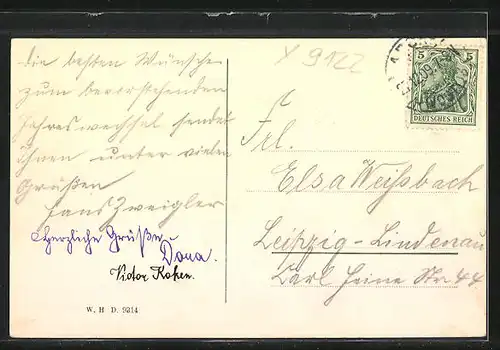 die besten Wünsche
zum bevorstehenden
Jahreswechsel sendet
ihnen unter vielen
Grüßen
Hans Zweigler
Herzliche Grüße
Dora.
Victor Kohen.
W. H D. 9314
Y 9122
5 5
DEUTSCHES REICH
Frl.
Elsa Weißbach
Leipzig-Lindenau
Carl Heine Str 44